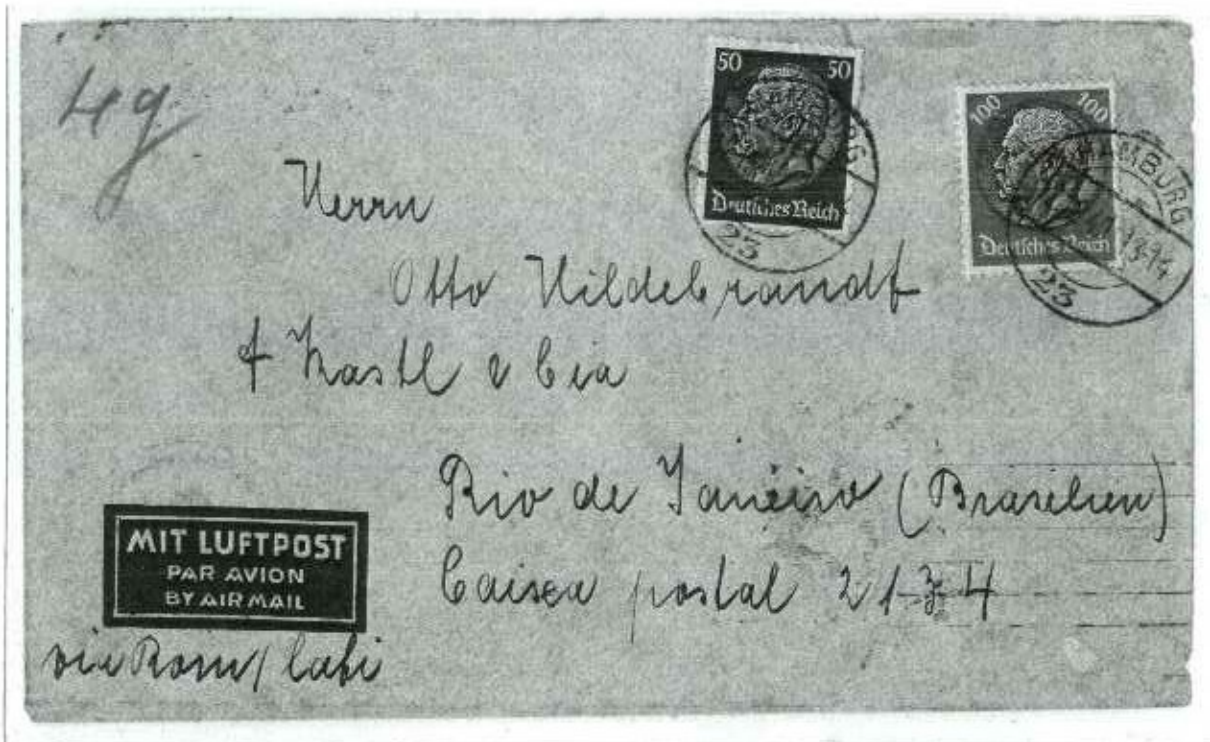 4g
50 50
Deutsches Reich
23
100 100
Deutsches Reich
HAMBURG
23
Herrn
Otto Hildebrandt
f Kastl & Cia
Rio de Janeiro (Braselien)
Caixa postal 2134
MIT LUFTPOST
PAR AVION
BY AIR MAIL
via Rom/Lati